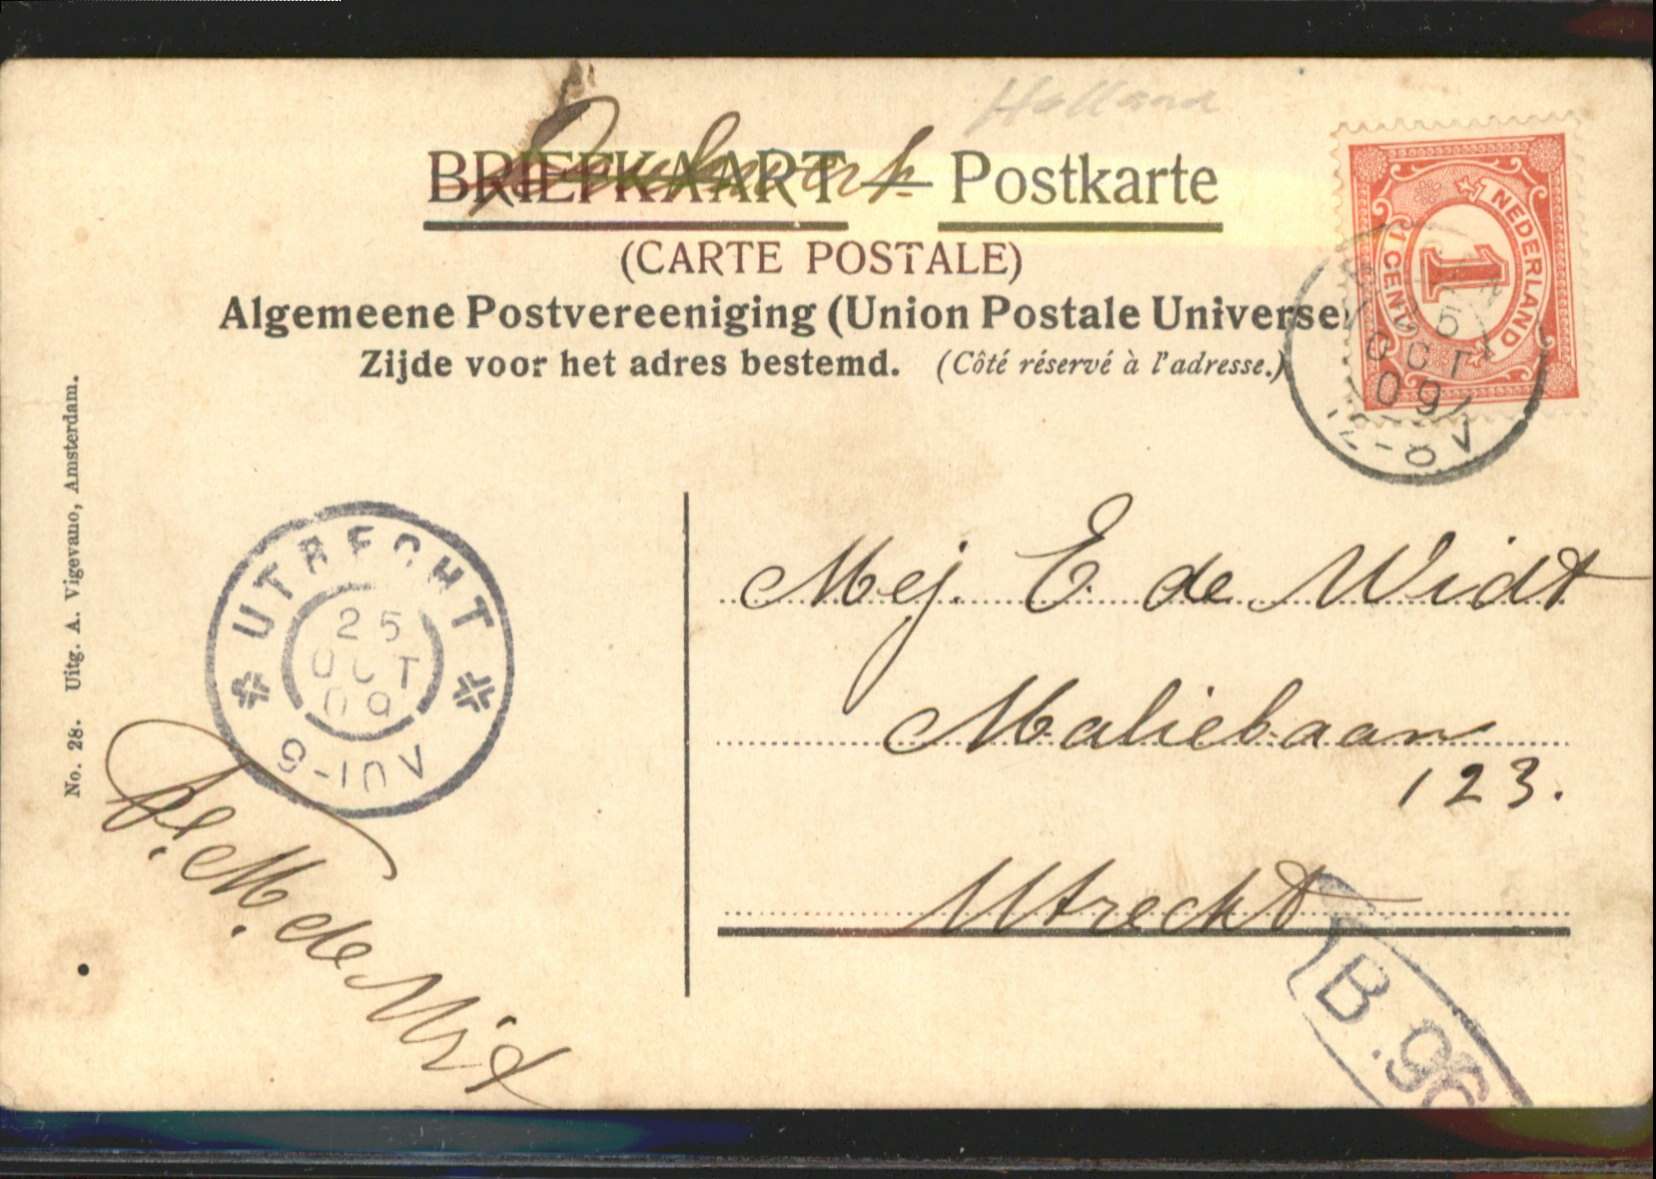 Holland
Drukwerk
BRIEFKAART — Postkarte
(CARTE POSTALE)
Algemeene Postvereeniging (Union Postale Universe
Zijde voor het adres bestemd. (Côté réservé à l'adresse.)
1 NEDERLAND
1 CENT
1
25
OCT
09
12-8V
UTRECHT
25
OCT
09
5-10V
Mej. E. de Widt
Maliebaan
123.
Utrecht
B.96
M. de Wit
No. 28. Uitg. A. Vigevano, Amsterdam.